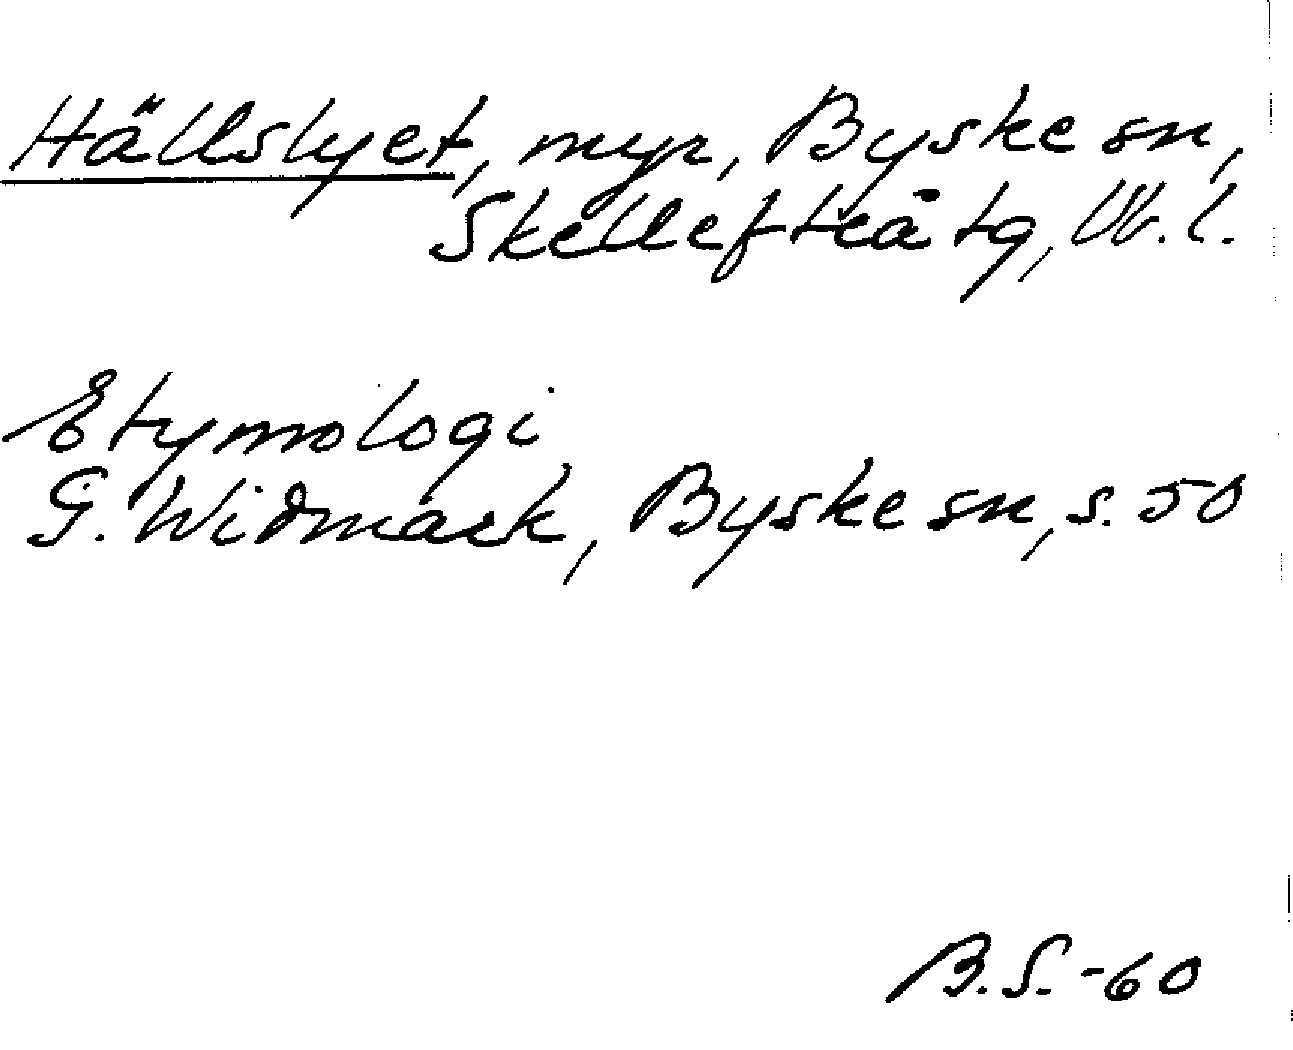 Hällslyet, myr, Byske sn,
Skellefteå tg, Vb. l.
Etymologi
G. Widmark, Byske sn, s. 50
B.S.-60